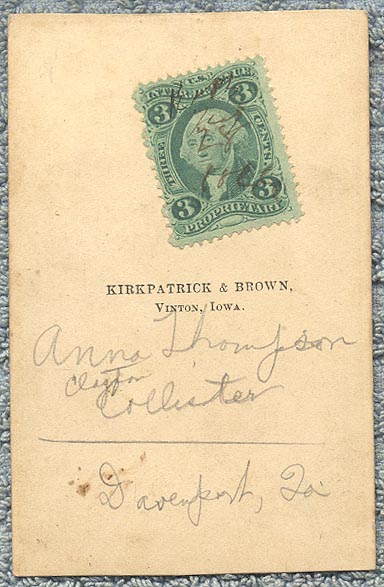 U.S. INTER. REV.
3 3
THREE CENTS
3 3
PROPRIETARY
KIRKPATRICK & BROWN,
VINTON, IOWA.
Anna Thompson
Clayton
Collister
Davenport, Ia